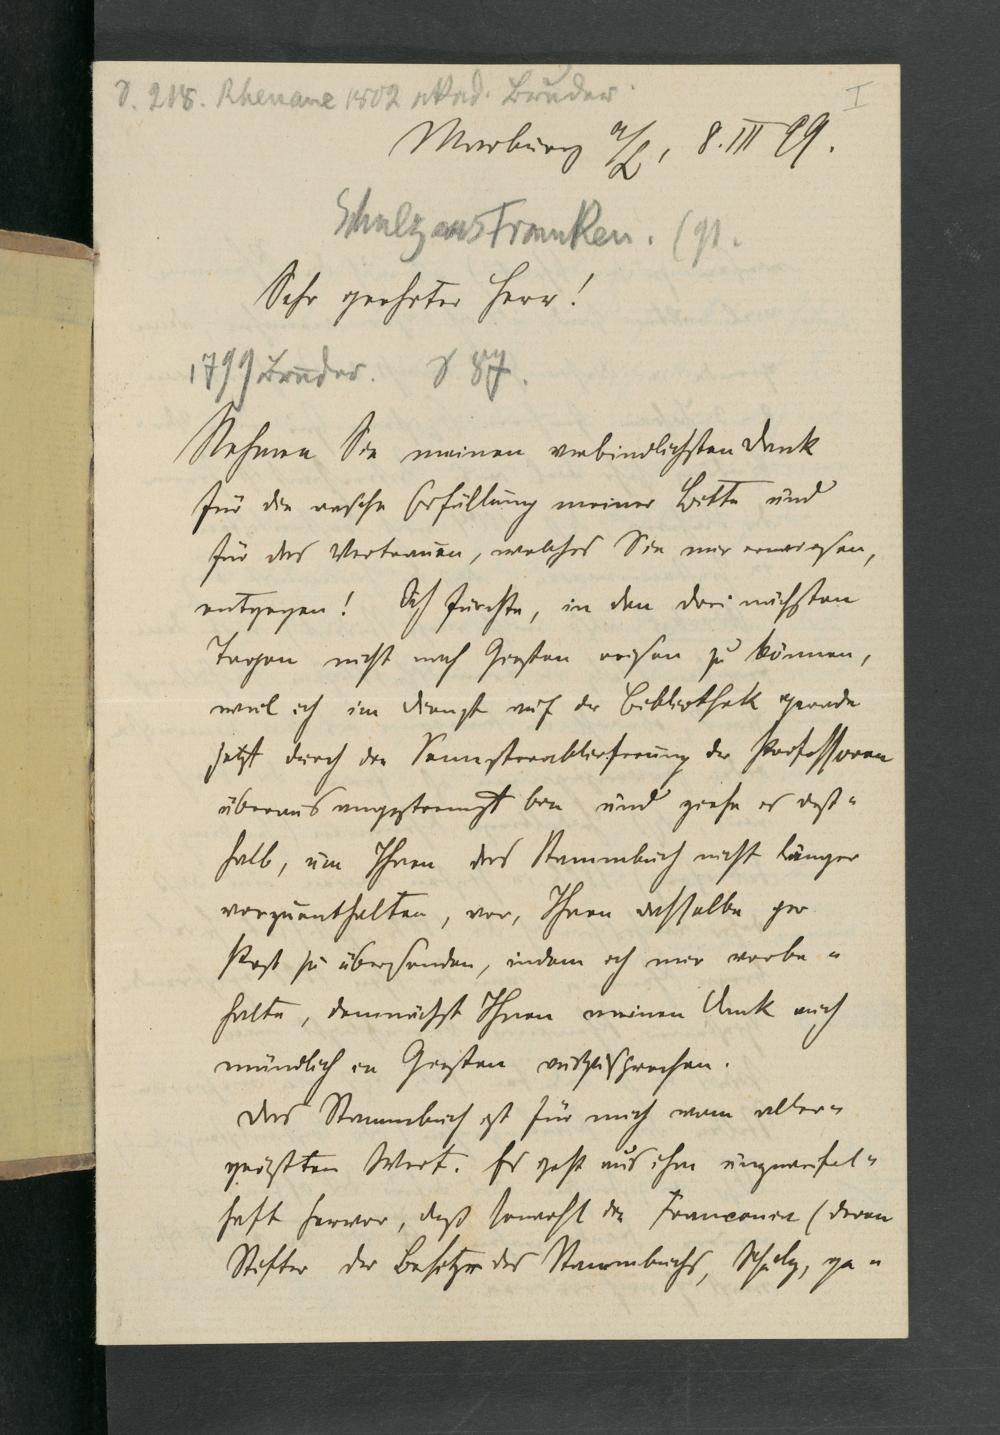 S. 218. Rhenane 1802 akad. Bruder. I
Marburg a/L, 8. III 99.
Schulz aus Franken. (91.
Sehr geehrter Herr!
1799 Bruder. S 87.
Nehmen Sie meinen verbindlichsten Dank
für die rasche Erfüllung meiner Bitte und
für das Vertrauen, welches Sie mir erwiesen,
entgegen! Ich fürchte, in den drei nächsten
Tagen nicht nach Giessen reisen zu können,
weil ich im Dienst auf der Bibliothek gerade
jetzt durch die Semesterablieferung der Professoren
überaus angestrengt bin und ziehe es desh-
halb, um Ihnen das Stammbuch nicht länger
vorzuenthalten, vor, Ihnen dasselbe per
Post zu übersenden, indem ich mir vorbe-
halte, demnächst Ihnen meinen Dank auch
mündlich in Giessen auszusprechen.
Das Stammbuch ist für mich vom aller-
größten Wert. Es geht aus ihm unzweifel-
haft hervor, daß sowohl die Franconia (deren
Stifter der Besitzer des Stammbuchs, Schulz, ge-